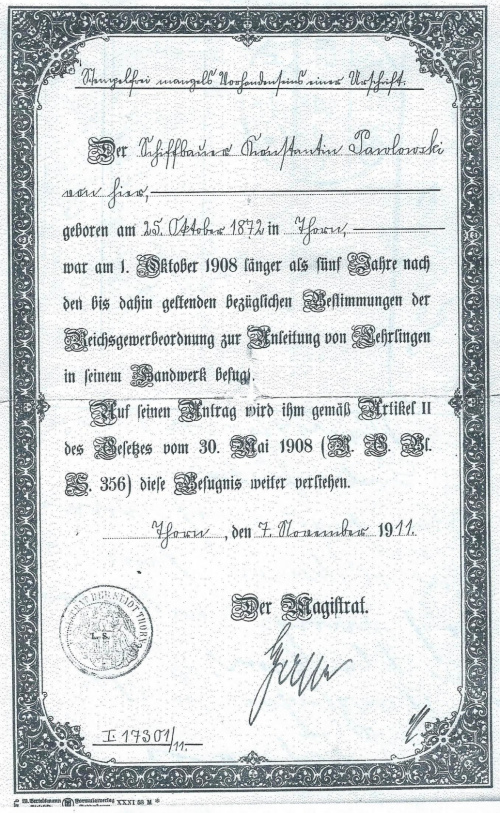 Stempelfrei mangels Vorhandenseins einer Urschrift.
Der Schiffbauer Konstantin Pawlowski
von hier,
geboren am 25. Oktober 1872 in Thorn,
war am 1. Oktober 1908 länger als fünf Jahre nach
den bis dahin geltenden bezüglichen Bestimmungen der
Reichsgewerbeordnung zur Anleitung von Lehrlingen
in seinem Handwerk befugt.
Auf seinen Antrag wird ihm gemäß Artikel II
des Gesetzes vom 30. Mai 1908 (R. G. Bl.
S. 356) diese Befugnis weiter verliehen.
Thorn, den 7. November 1911.
Der Magistrat.
DER STADT THORN
L. S.
I. 17301/11.
Formularverlag XXXI 58 M *